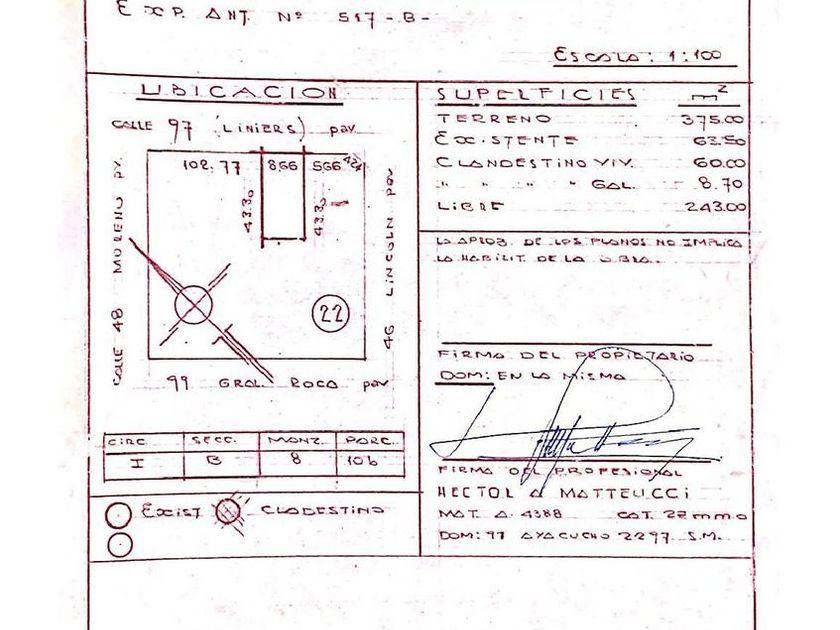 EXP. ANT. Nº 517-B-
ESCALA: 1:100
UBICACION
CALLE 97 (LINIERS) pav
102.77 866 566
43.30
43.30
CALLE 48 MORENO PV.
46 LINCOLN pav
22
99 GRAL ROCA pav
CIRC. SECC. MANZ. PARC.
I B 8 10b
EXIST CLADESTINO
SUPERFICIES m2
TERRENO 375.00
EXISTENTE 63.50
CLANDESTINO VIV. 60.00
" " " " GAL. 8.70
LIBRE 243.00
LA APROB. DE LOS PLANOS NO IMPLICA
LA HABILIT. DE LA OBRA.
FIRMA DEL PROPIETARIO
DOM: EN LA MISMA
FIRMA DEL PROFESIONAL
HECTOR A MATTEUCCI
MAT. A. 4388 CAT.
DOM: 97 AYACUCHO 2297 S.M.